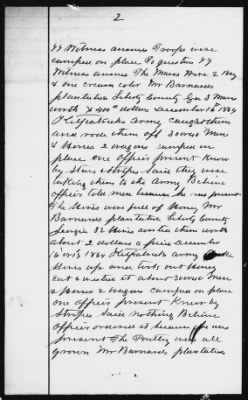 2
77 Witness answers Troops were
camped on place To question 77
Witness answers The Mares were 2 Bay
& one cream color Mr Barnards
plantation Liberty County Ga 3 Mares
worth $400 dollars December 16th 1864
Kilpatricks Army caught them
and rode them off Several Men
& Horses 2 wagons camped on
place one officer present Know
by Stars & Stripes Said they were
taking them to the Army Believe
officer told men because he was present
The Hives was full of Honey Mr
Barnards plantation Liberty County
Georgia 32 Hives them worth
about 2 dollars a piece December
16 1864 Kilpatricks army
Hives up and took out Honey
eat & wasted it about several Men
& Horses 2 wagons camped on place
one officer present Knew by
Stripes Said nothing Believe
officer ordered it because he was
present The Poultry was all
grown Mr Barnards plantation